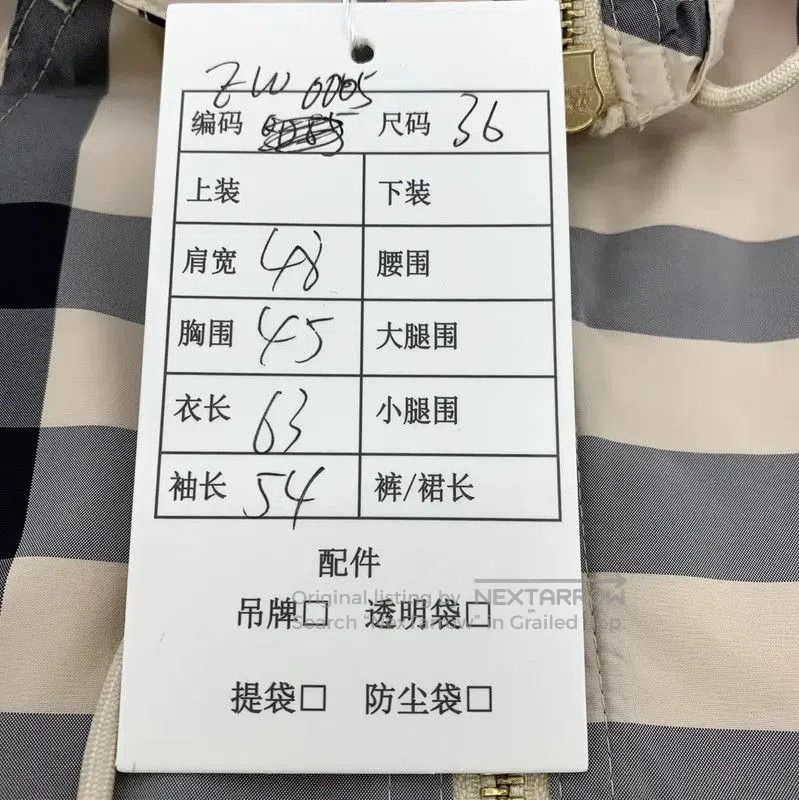 ZW 0005
编码 尺码 36
上装 下装
肩宽 48 腰围
胸围 45 大腿围
衣长 63 小腿围
袖长 54 裤/裙长
配件
吊牌□ 透明袋□
Original listing by NEXTARROW
Search "NexTarrow" in Grailed app
提袋□ 防尘袋□